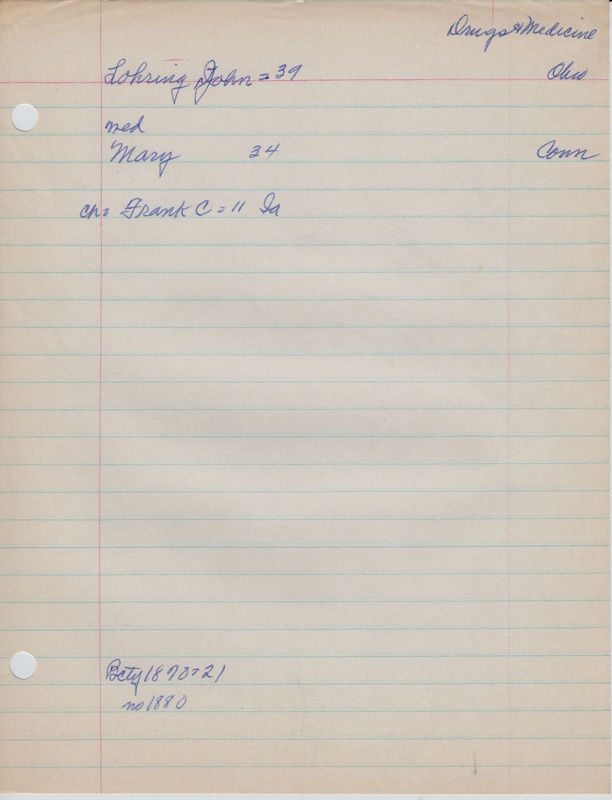 Drugs & Medicine
Lohring John = 39 Ohio
med
Mary 34 Conn
ch = Frank C = 11 Ia
Bcty 1870 = 21
no 1880